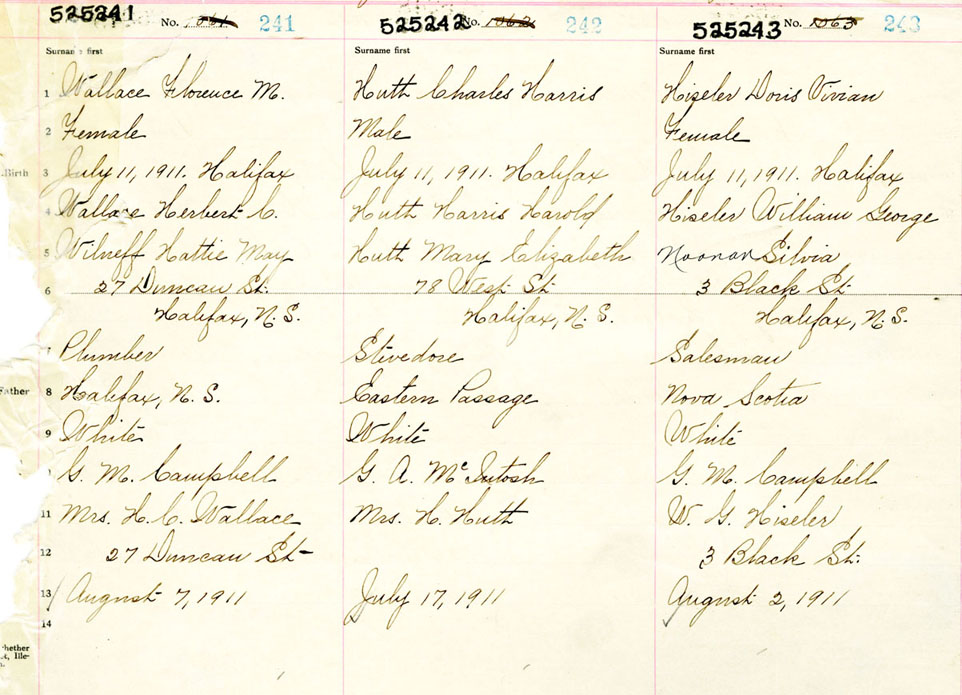 525241 No. 1061 241
Surname first
1 Wallace Florence M.
2 Female
3 July 11, 1911. Halifax
4 Wallace Herbert C.
5 Wilneff Hattie May
6 27 Duncan St.
Halifax, N. S.
7 Plumber
8 Halifax, N. S.
9 White
G. M. Campbell
11 Mrs. H. C. Wallace
12 27 Duncan St
13 August 7, 1911
14
525242 No. 1062 242
Surname first
Huth Charles Harris
Male
July 11, 1911. Halifax
Huth Harris Harold
Huth Mary Elizabeth
78 West St.
Halifax, N. S.
Stevedore
Eastern Passage
White
G. A. McIntosh
Mrs. H. Huth
July 17, 1911
525243 No. 1063 243
Surname first
Hiseler Doris Vivian
Female
July 11, 1911. Halifax
Hiseler William George
Noonan Silvia
3 Black St.
Halifax, N. S.
Salesman
Nova Scotia
White
G. M. Campbell
W. G. Hiseler
3 Black St.
August 2, 1911
Birth
Father